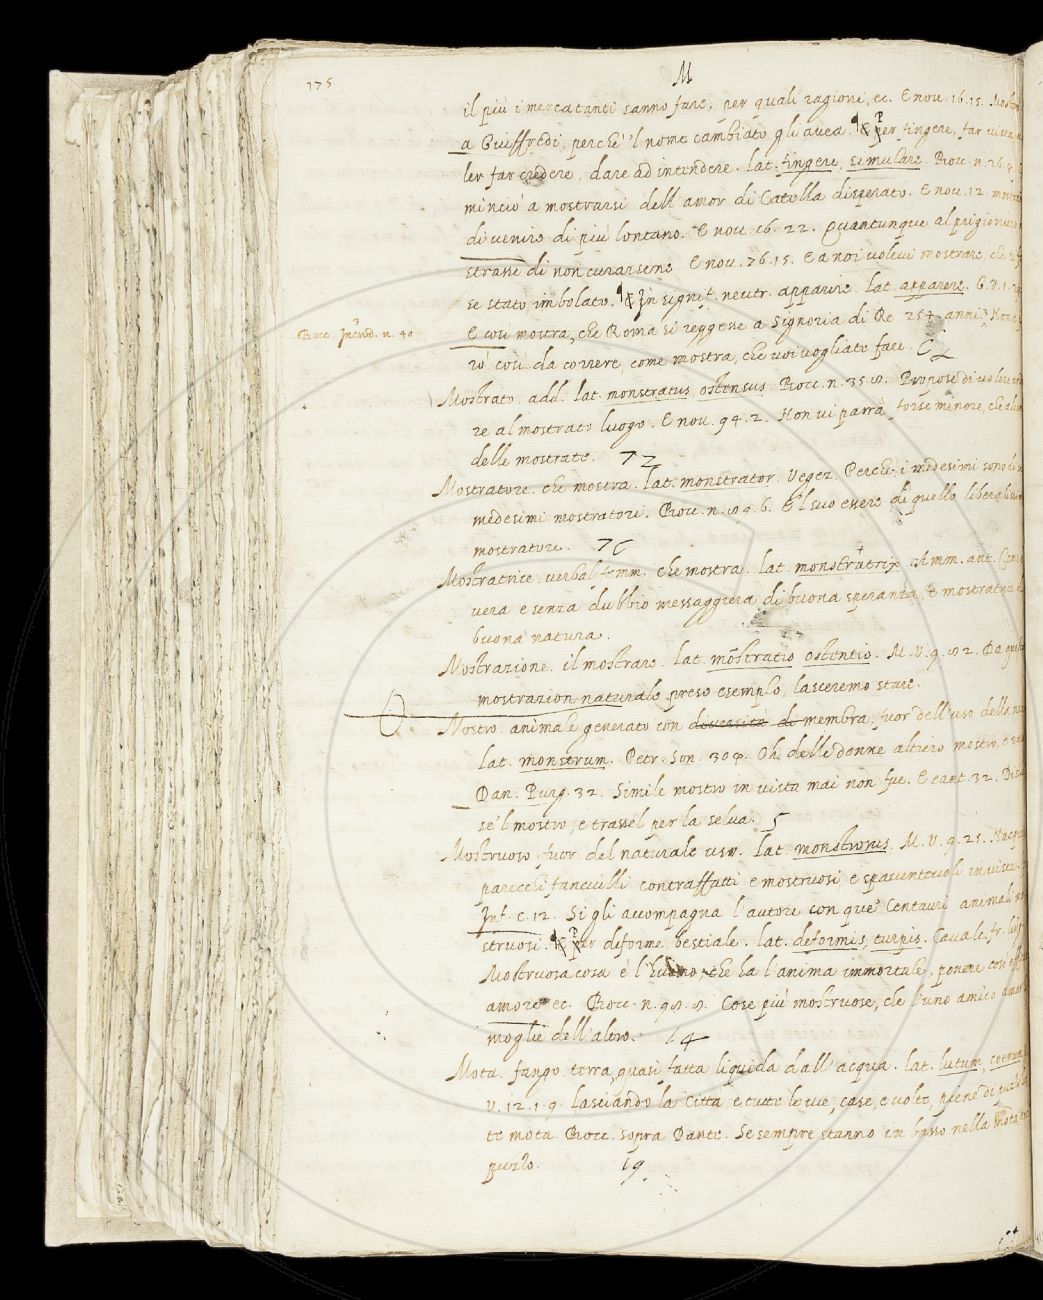 175
M
il più i mercatanti sanno fare, per quali ragioni, ec. E nov. 16. 15.
a Giuffredi, perche 'l nome cambiato gli avea. ¶ & per fingere, far
ler far credere, dare ad intendere. lat. fingere, simulare. Bocc. n.
minciò a mostrarsi dell' amor di Catella disperato. E nov. 12.
di venire di più lontano. E nov. 16. 22. Quantunque al
strasse di non curarsene. E nov. 76. 15. E a noi volevi mostrare, che
se stato imbolato. ¶ & In signif. neutr. apparire. lat. apparere. G. V. 1.
Bocc. n. 40
E così mostra, che Roma si reggesse a Signoria di Re 254. anni.
rò così da correre, come mostra, che voi vogliate fare.
Mostrato. add. lat. monstratus, ostensus. Bocc. n. 35. 8. Propose di volere
re al mostrato luogo. E nov. 94. 2. Non vi parrà forse minore, che
delle mostrate. 72
Mostratore. che mostra. lat. monstrator. Vegez. Perchè i medesimi sono
medesimi mostratori. Bocc. n. E 'l suo essere di quello
mostratore.
Mostratrice. verbal femm. che mostra. lat. monstratrix. Amm. ant.
vera e senza dubbio messaggiera di buona speranza, e mostratrice
buona natura.
Mostrazione. il mostrare. lat. mōstratio ostentio. M. V. 9. 82. Da
mostrazion naturale preso esemplo, lasceremo stare.
Mostro. animale generato con diversità di membra, fuor dell' uso della
lat. monstrum. Petr. Son. Oh delle donne altiero mostro, e
Dan. Purg. 32. Simile mostro in vista mai non fue. E cant. 32.
se 'l mostro, e trassel per la selva. 5
Mostruoso. fuor del naturale uso. lat. monstrosus. M. V. 9. 25.
parecchi fanciulli contraffatti e mostruosi e spaventevoli in vista.
Inf. c. 12. Si gli accompagna l' autore con que' Centauri animali
struosi. ¶ & Per deforme bestiale. lat. deformis, turpis. Cavalc. fr. ling.
Mostruosa cosa é l' huomo, che ha l' anima immortale, ponere con
amore ec. Bocc. n. 98. 8. Cose più mostruose, che l' uno amico
moglie dell' altro. 14
Mota. fango. terra, quasi fatta liquida dall' acqua. lat. lutum,
V. 12. 1. 9. lasciando la Città e tutte le vie, case, e volte, piene di
te mota. Bocc. sopra Dante. Se sempre stanno in basso nella mota,
puzlo. 19